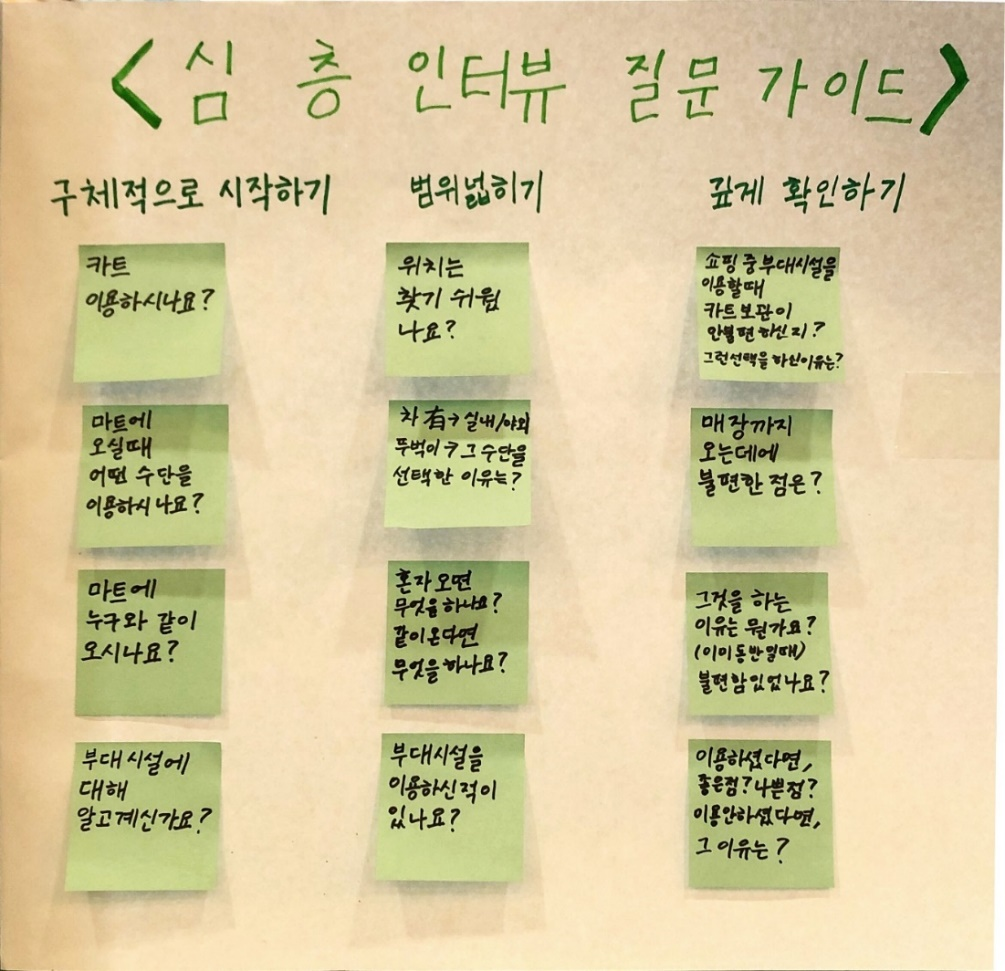 <심 층 인터뷰 질문 가이드>
구체적으로 시작하기
카트
이용하시나요?
마트에
오실때
어떤 수단을
이용하시나요?
마트에
누구와 같이
오시나요?
부대시설에
대해
알고계신가요?
범위넓히기
위치는
찾기 쉬웠
나요?
차 有→ 실내/야외
뚜벅이→ 그 수단을
선택한 이유는?
혼자오면
무엇을 하나요?
같이온다면
무엇을 하나요?
부대시설을
이용하신적이
있나요?
깊게 확인하기
쇼핑 중 부대시설을
이용할때
카트보관이
안불편하신지?
그런선택을 하신이유는?
매장까지
오는데에
불편한 점은?
그것을 하는
이유는 뭔가요?
(이이동반일때)
불편함있었나요?
이용하셨다면,
좋은점? 나쁜점?
이용안하셨다면,
그 이유는?